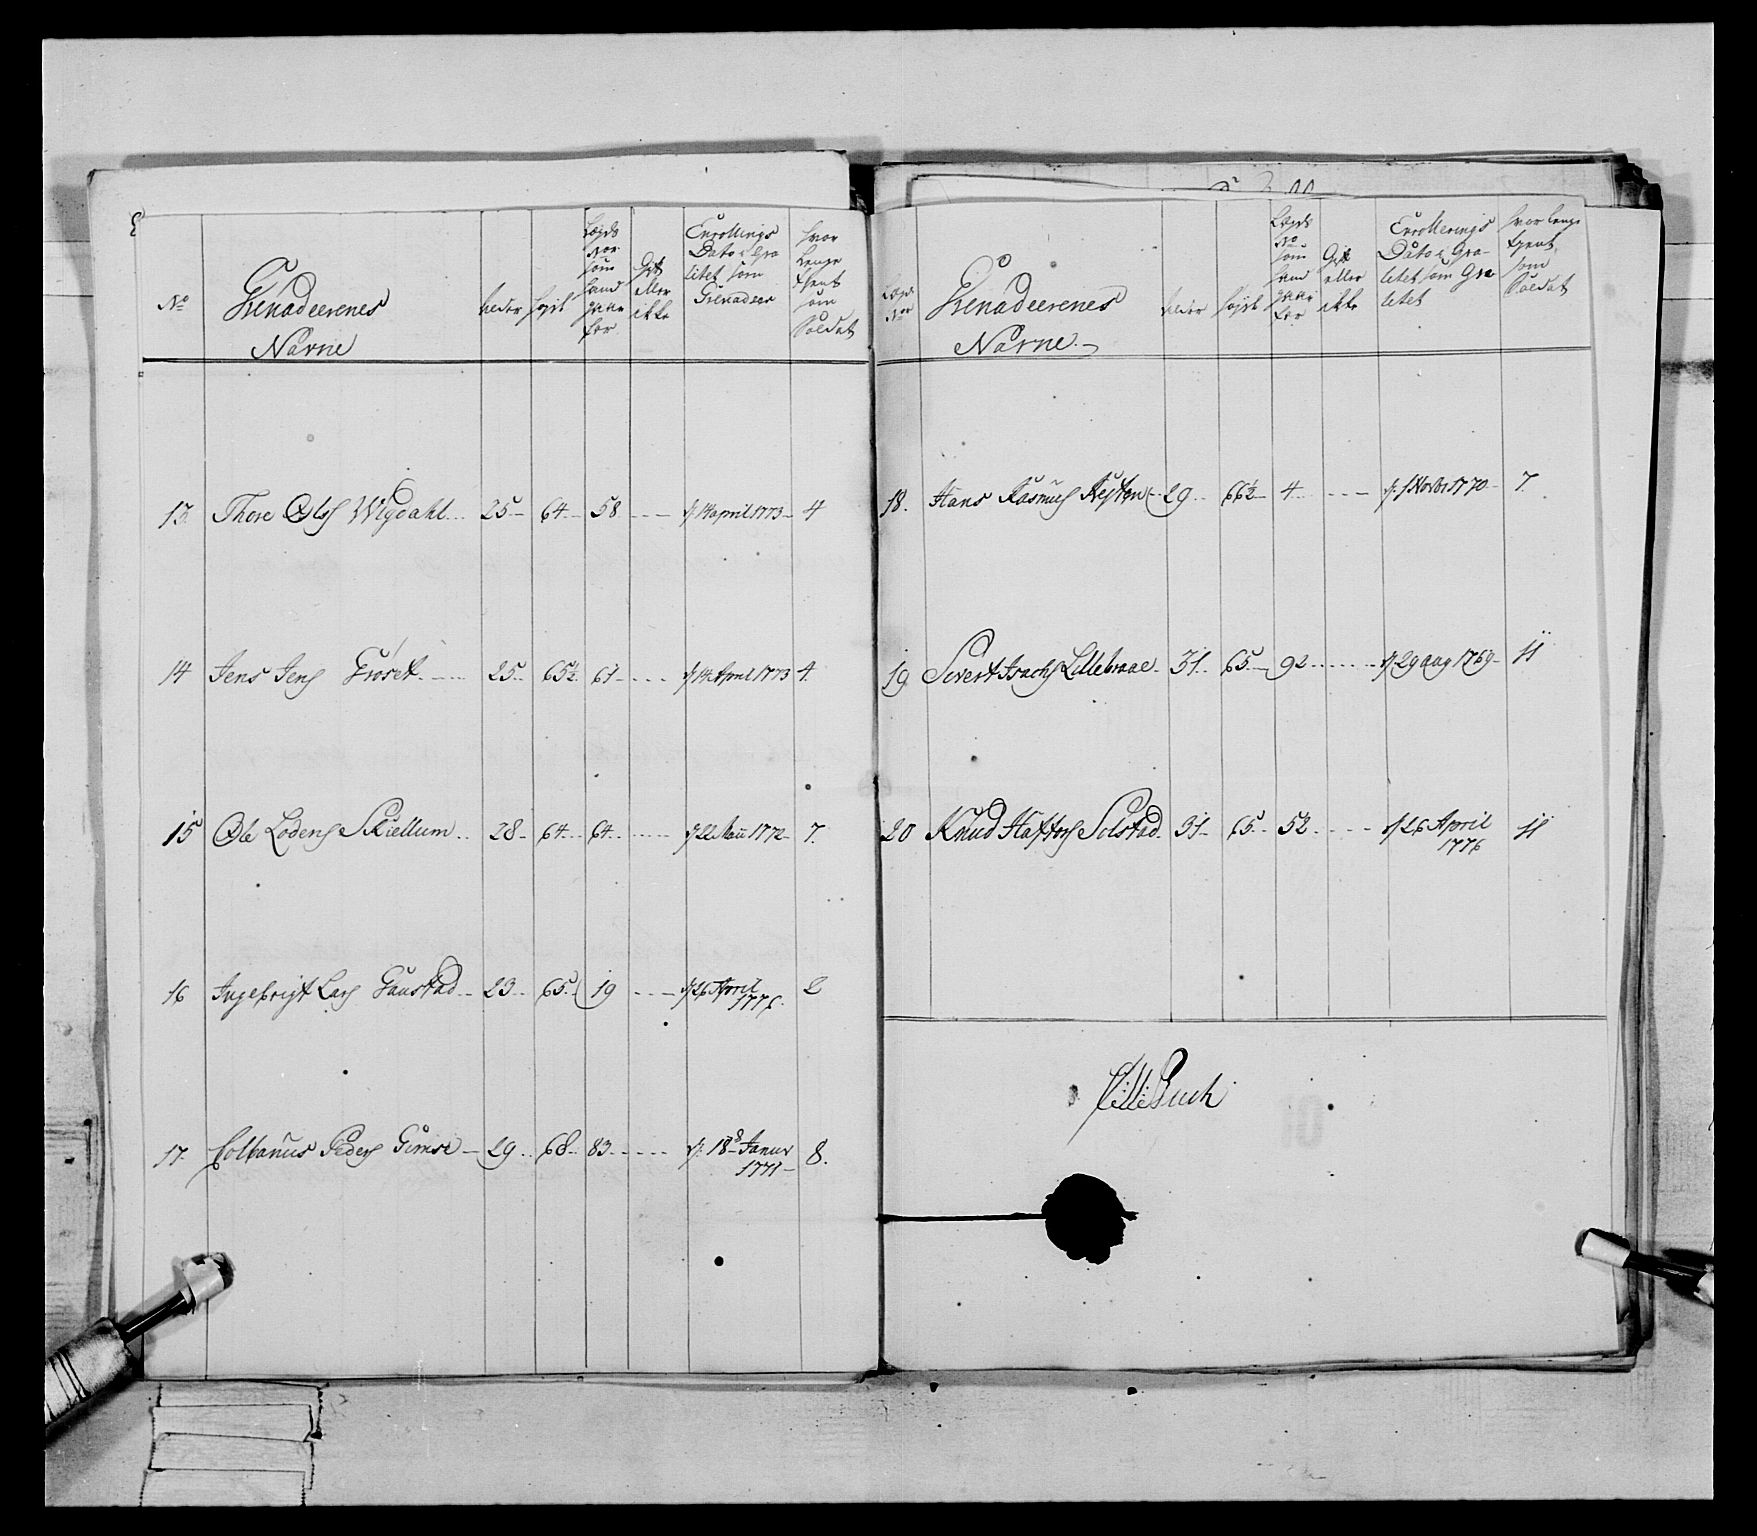 No
Grenadeerenes
Navne
alder
høyde
Lægds
Nor
som
hand
gaar
for
Gift
eller
ikke
Enrollings
Dato i Gra
litet som
Grenadeer
hvor
Længe
tient
som
Soldat
13. Thore Ols Wigdahl 25 64 58 14 april 1773 4
14 Jens Jens Grøset 25 65½ 61 14 April 1773 4.
15 Ole Lodens Skiellum 28 64 64 22 Maii 1772 7.
16 Ingebrigt Lars Gaustad 23 65 19 26 April
1776. 2
17. Colbanus Peders Gimse 29 68 83 18 Januar
1771 8.
Lægds
Nor
Grenadeerenes
Navne
alder
høyde
Lægds
No
som
hand
gaar
for
Gift
eller
ikke
Enrollerings
Dato i Gra-
litet som Gra
litet
hvor længe
tient
som
Soldat
18. Hans Rasmus 29 66½ 4 1 Novbr 1770 7.
19. Sivert Isachs Lillebraae 31 65 92 29 aug 1769 11
20 Knud Haftors Solstad 31 65 52 26 April
1776 11